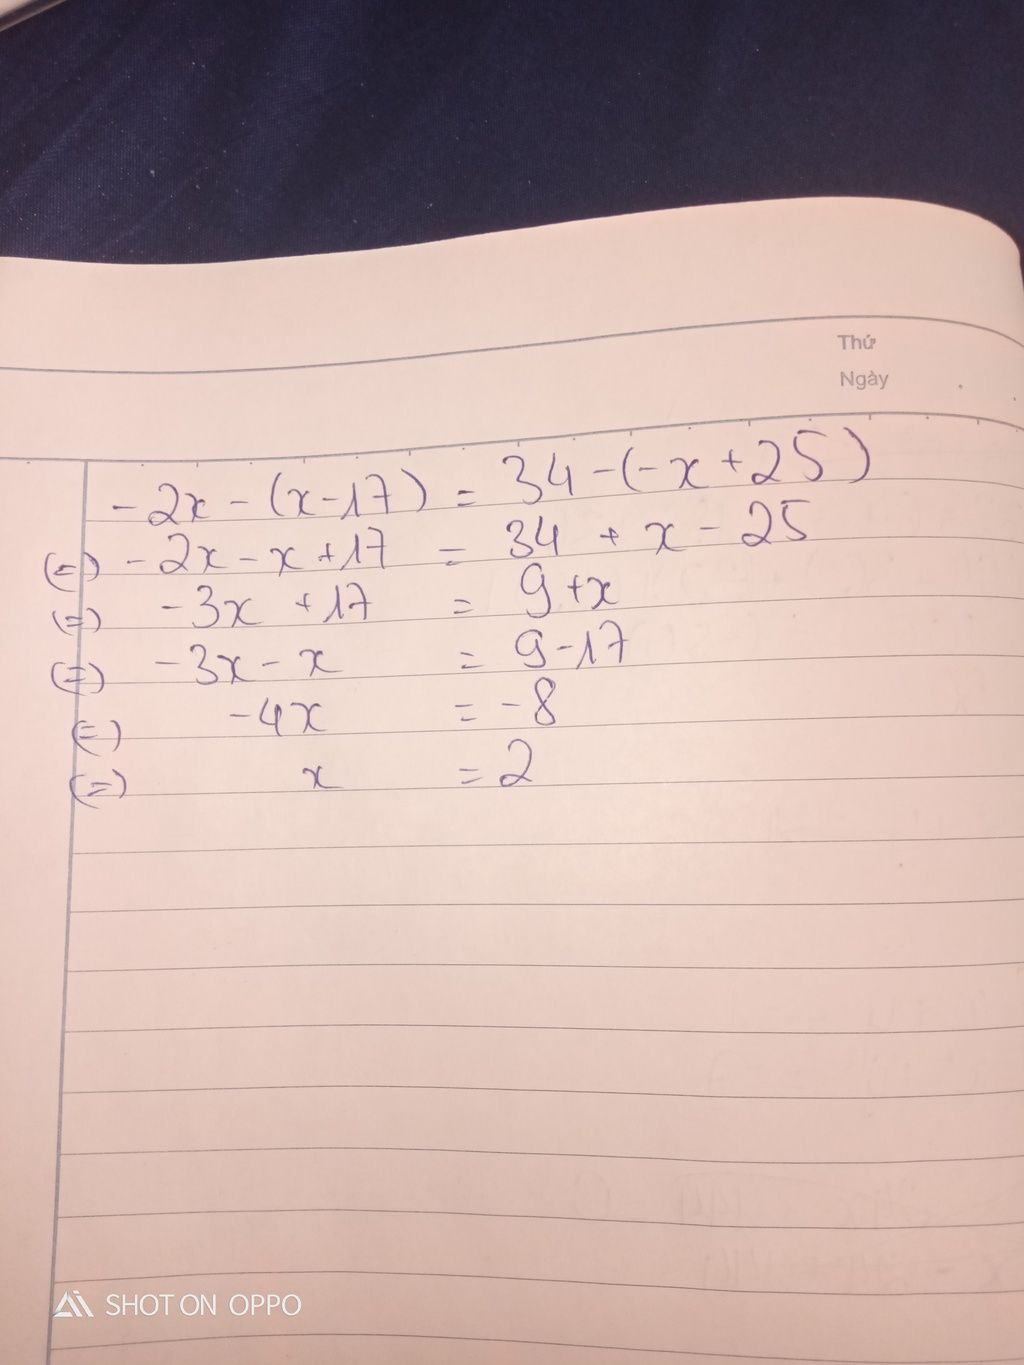 Thứ
Ngày
-2x - (x-17) = 34 - (-x + 25)
(=) -2x - x + 17 = 34 + x - 25
(=) -3x + 17 = 9 + x
(=) -3x - x = 9 - 17
(=) -4x = -8
(=) x = 2
SHOT ON OPPO